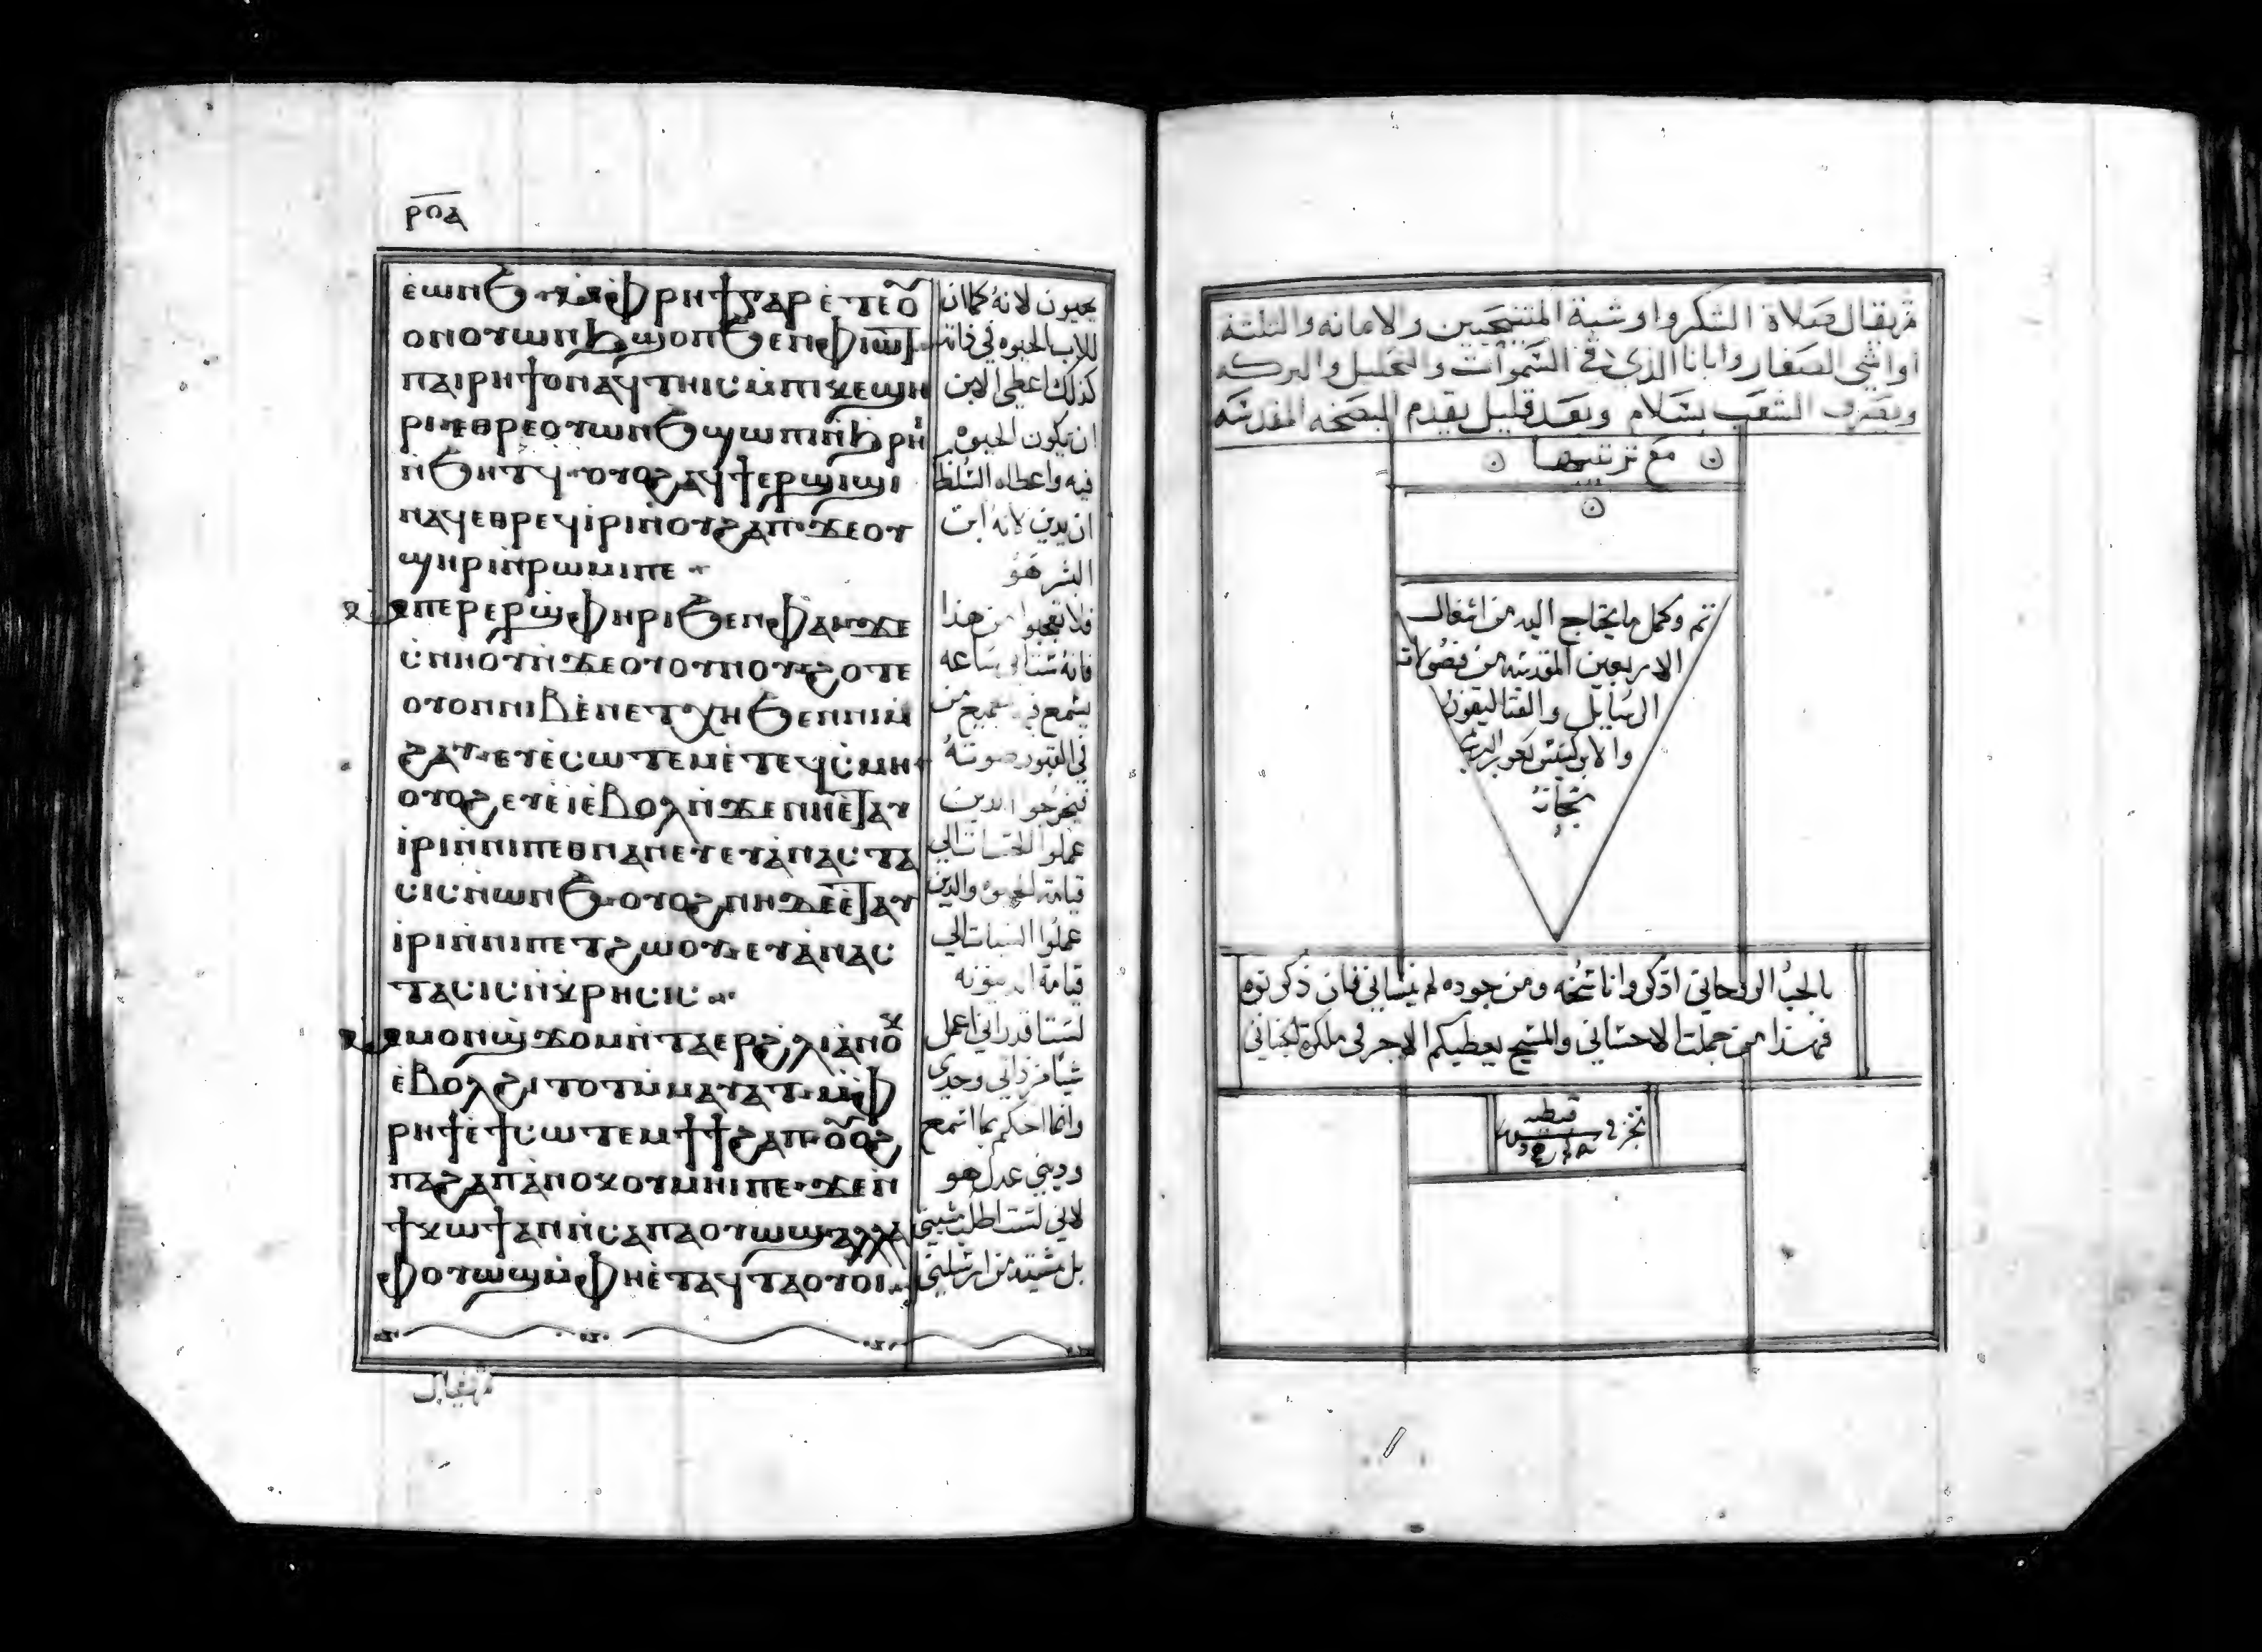 ⲣⲟⲁ
ⲉ̀ⲱⲛϧ ⲙ̀ⲫⲣⲏϯ ⲅⲁⲣ ⲉ̀ⲧⲉ ⲟ̅
ⲟⲛⲟⲩⲱⲛϧ ϣⲟⲡ ϧⲉⲛ ⲫⲓⲱⲧ
ⲡⲁⲓⲣⲏϯ ⲟⲛ ⲁϥⲧⲏⲓⲥ ⲙ̀ⲡⲓⲕⲉϣⲏ
ⲣⲓ ⲉⲑⲣⲉ ⲟⲩⲱⲛϧ ϣⲱⲡⲓ ⲛ̀ϧⲣⲏⲓ
ⲛ̀ϧⲏⲧϥ ⲟⲩⲟϩ ⲁϥϯⲉⲣϣⲓϣⲓ
ⲛⲁϥ ⲉⲑⲣⲉϥⲓ̀ⲣⲓ ⲛ̀ⲟⲩϩⲁⲡ ϫⲉ ⲟⲩ
ϣⲏⲣⲓ ⲛ̀ⲣⲱⲙⲓ ⲡⲉ
ⲙⲡⲉⲣⲉⲣϣⲫⲏⲣⲓ ϧⲉⲛ ⲫⲁⲓ ϫⲉ
ⲥ̀ⲛⲏⲟⲩ ⲛ̀ϫⲉ ⲟⲩⲟⲩⲛⲟⲩ ϩⲟⲧⲉ
ⲟⲩⲟⲛ ⲛⲓⲃⲉⲛ ⲉⲧⲭⲏ ϧⲉⲛ ⲛⲓⲙ̀
ϩⲁⲩ ⲉⲩⲉ̀ⲥⲱⲧⲉⲙ ⲉ̀ⲧⲉϥⲥ̀ⲙⲏ
ⲟⲩⲟϩ ⲉⲩⲉ̀ⲓ̀ ⲉ̀ⲃⲟⲗ ⲛ̀ϫⲉ ⲛⲏ ⲉ̀ⲧⲁⲩ
ⲓ̀ⲣⲓ ⲛ̀ⲛⲓⲡⲉⲑⲛⲁⲛⲉⲩ ⲉⲩⲁ̀ⲛⲁⲥⲧⲁ
ⲥⲓⲥ ⲛ̀ⲱⲛϧ ⲟⲩⲟϩ ⲛⲏ ⲇⲉ ⲉ̀ⲧⲁⲩ
ⲓ̀ⲣⲓ ⲛ̀ⲛⲓⲡⲉⲧϩⲱⲟⲩ ⲉⲩⲁ̀ⲛⲁⲥ
ⲧⲁⲥⲓⲥ ⲛ̀ⲕⲣⲏⲥⲓⲥ
ⲙⲙⲟⲛϣϫⲟⲙ ⲛ̀ⲧⲁⲉⲣϩⲗⲓ ⲁ̀ⲛⲟⲕ
ⲉ̀ⲃⲟⲗ ϩⲓⲧⲟⲧ ⲙ̀ⲙⲁⲩⲁⲧ ⲙ̀ⲫ
ⲣⲏϯ ⲉ̀ϯⲥⲱⲧⲉⲙ ϯϯϩⲁⲡ ⲟ̅ⲟϩ
ⲡⲁϩⲁⲡ ⲁ̀ⲛⲟⲕ ⲟⲩⲙⲏⲓ ⲡⲉ ϫⲉ ⲛ̀
ϯⲕⲱϯ ⲁⲛ ⲛ̀ⲥⲁ ⲡⲁⲟⲩⲱϣ ⲁⲗⲗⲁ
ⲫⲟⲩⲱϣ ⲙ̀ⲫⲏ ⲉ̀ⲧⲁϥⲧⲁⲟⲩⲟⲓ
يحيون لانه كما ان
للاب الحيوه في ذاته
كذلك اعطي الابن
ان تكون الحيوه
فيه واعطاه السلطا
ان يدين لانه ابن
البشر هو
فلا تعجبوا من هذا
فانه ستاتي ساعه
يسمع فيها جميع من
في القبور صوته
فيخرجوا الذين
عملوا الحسنات الي
قيامة الحيوه والذين
عملوا السيات الي
قيامة الدينونه
لست اقدر اني اعمل
شيا من ذاتي وحدي
وانما احكم بما اسمع
وديني عدل هو
لاني لست اطلب مشيتي
بل مشية من ارسلني
ثم يقال
ثم يقال صلاة الشكر واوشية المتنيحيين والامانه والثلثة
اواشي الصغار وابانا الذي في السموات والتحليل والبركه
ويصرف الشعب بسلام وبعد قليل يقدم البصخه المقدسه
مع ترتيبها
تم وكمل ما يحتاج اليه من اشغال
الاربعين المقدسه من فصولات
الرسايل والقتاليقون
والابركسس
بالحب الروحاني اذكروا ناسخه ومن جوده لم ينساني فان ذكرتوه
فهذا من جملت الاحساني والمسيح يعطيكم الاجر في ملكوته الحناني
نجز في قبطيه